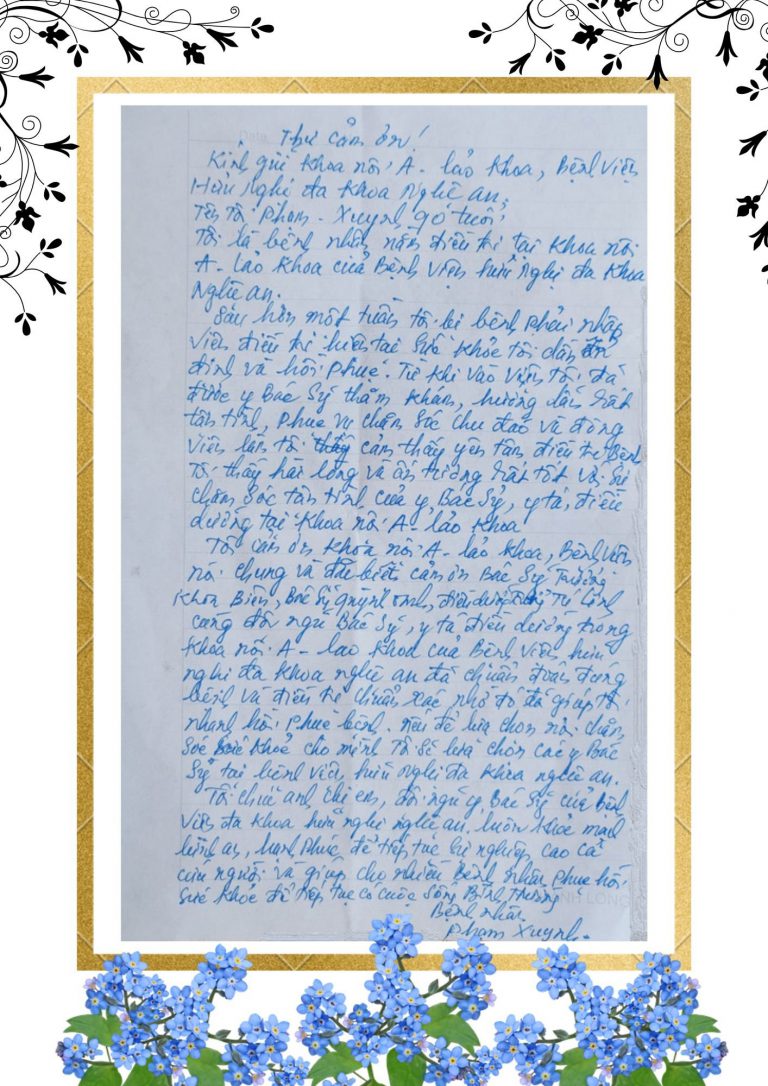 Thư cảm ơn!
Kính gửi Khoa nội A - lão Khoa, Bệnh Viện
Hữu Nghị đa Khoa Nghệ an,
Tên Tôi: Phạm - Xuynh 90 tuổi,
Tôi là bệnh nhân nằm điều trị tại Khoa nội
A - lão Khoa của Bệnh Viện hữu nghị đa Khoa
Nghệ an.
Sau hơn một tuần tôi bị bệnh phải nhập
viện điều trị hiện tại sức khỏe tôi dần ổn
định và hồi phục. Từ khi vào viện tôi đã
được y Bác Sỹ thăm khám, hướng dẫn rất
tận tình, phục vụ chăm sóc chu đáo và động
viên làm tôi cảm thấy yên tâm điều trị bệnh
Tôi thấy hài lòng và ấn tượng rất tốt với sự
chăm sóc tận tình của y, Bác Sỹ, y tá, điều
dưỡng tại Khoa nội A - lão Khoa
Tôi cảm ơn Khoa nội A - lão Khoa, Bệnh viện
nói chung và đặc biệt cảm ơn Bác Sỹ Trưởng
Khoa Biên, Bác Sỹ Quỳnh điều dưỡng Tú Linh
cùng đội ngũ Bác Sỹ, y tá điều dưỡng trong
Khoa nội A - lão Khoa của Bệnh Viện hữu
nghị đa Khoa nghệ an đã chuẩn đoán đúng
bệnh và điều trị chuẩn xác, nhờ đó đã giúp tôi
nhanh hồi phục bệnh. nếu để lựa chọn nơi chăm
sóc sức khỏe cho mình Tôi sẽ lựa chọn các y Bác
Sỹ tại bệnh viện hữu nghị đa khoa nghệ an.
Tôi chúc anh chị em, đội ngũ y, Bác Sỹ của Bệnh
Viện đa khoa hữu nghị nghệ an, luôn khỏe mạnh
bình an, hạnh phúc để tiếp tục sự nghiệp cao cả
cứu người và giúp cho nhiều Bệnh nhân phục hồi
sức khỏe để tiếp tục có cuộc sống Bình thường
Bệnh nhân
Phạm Xuynh.